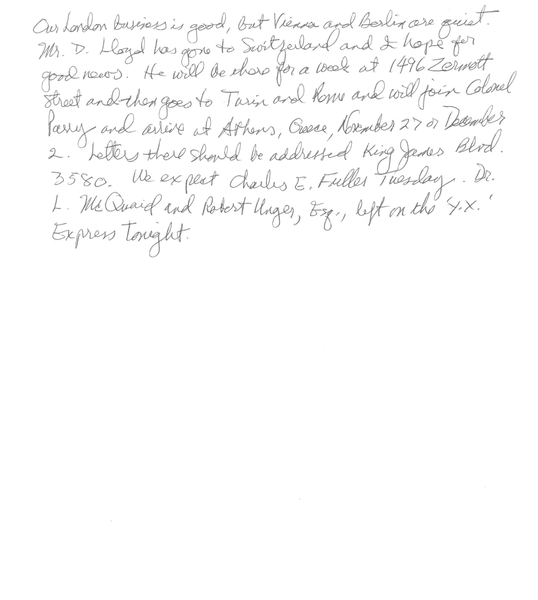 Our London business is good, but Vienna and Berlin are quiet.
Mr. D. Lloyd has gone to Switzerland and I hope for
good news. He will be there for a week at 1496 Zermott
Street and then goes to Turin and Rome and will join Colonel
Parry and arrive at Athens, Greece, November 27 or December
2. Letters there should be addressed King James Blvd.
3580. We expect Charles E. Fuller Tuesday. Dr.
L. McQuaid and Robert Unger, Esq., left on the 'Y.X.'
Express tonight.